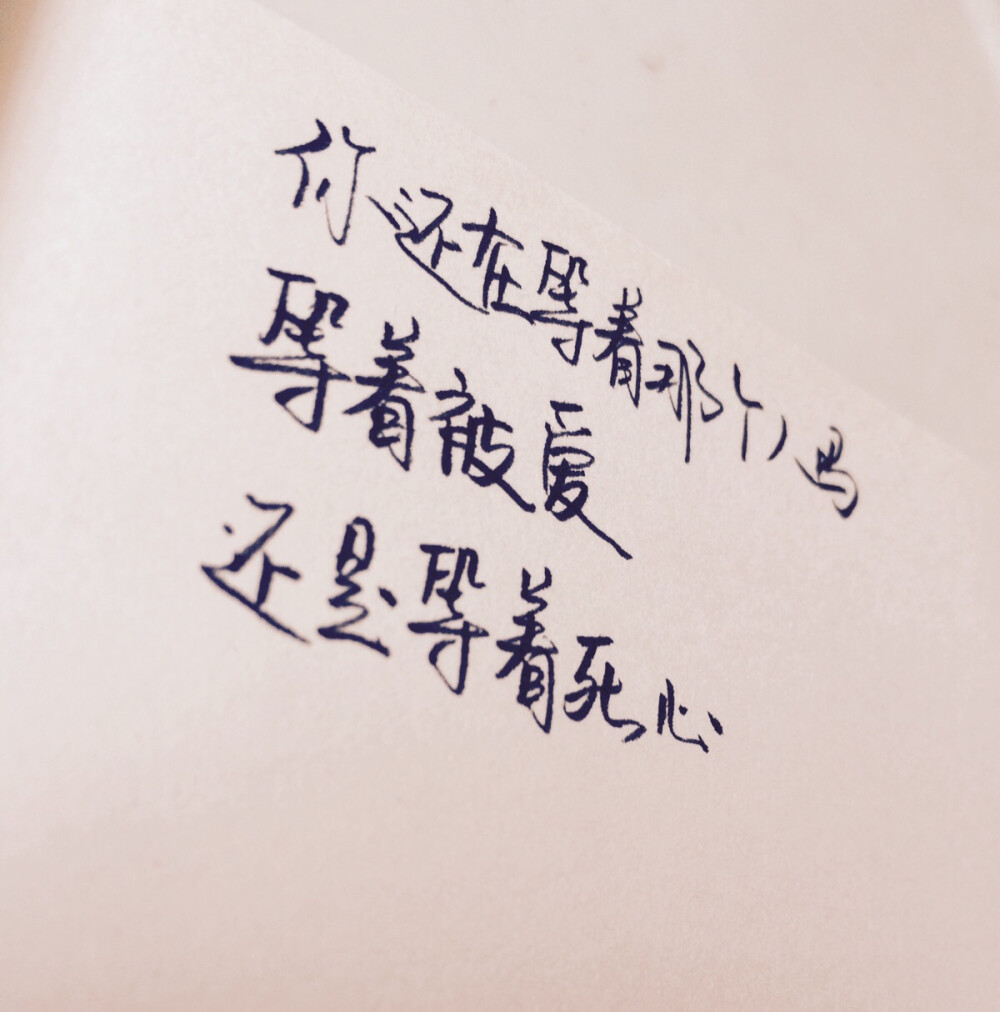 你还在等着那个吗
等着被爱
还是等着死心